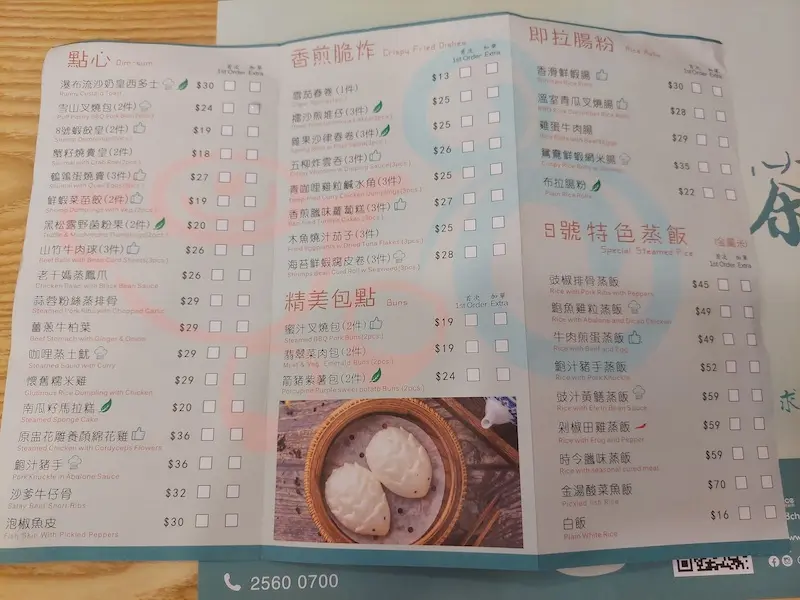 點心 Dim sum
首次 加單
1st Order Extra
瀑布流沙奶皇西多士 $30
Runny Custard Toast
雪山叉燒包(2件) $24
8號蝦餃皇(2件) $19
蟹籽燒賣皇(2件) $18
鵪鶉蛋燒賣(3件) $27
鮮蝦菜苗餃(2件) $19
黑松露野菌粉果(2件) $20
山竹牛肉球(3件) $26
老干媽蒸鳳爪 $26
蒜蓉粉絲蒸排骨 $29
薑蔥牛柏葉 $29
Beef Stomach with Ginger & Onion
咖喱蒸土魷 $29
Steamed Squid with Curry
懷舊糯米雞 $29
Glutinous Rice Dumpling with Chicken
南瓜籽馬拉糕 $20
Steamed Sponge Cake
原盅花雕養顏綿花雞 $36
Steamed Chicken with Cordyceps Flowers
鮑汁豬手 $36
Pork Knuckle in Abalone Sauce
沙爹牛仔骨 $32
Satay Beef Short Ribs
泡椒魚皮 $30
Fish Skin With Pickled Peppers
香煎脆炸 Crispy Fried Dishes
首次 加單
1st Order Extra
番茄春卷(1件) $13
擂沙煎堆仔(3件) $25
雜果沙律春卷(3件) $25
五柳炸雲吞(3件) $26
青咖喱雞粒鹹水角(3件) $25
香煎臘味蘿蔔糕(3件) $27
木魚燒汁茄子(3件) $25
海苔鮮蝦腐皮卷(3件) $28
精美包點 Buns
首次 加單
1st Order Extra
蜜汁叉燒包(2件) $19
Steamed BBQ Pork Buns(2pcs.)
翡翠菜肉包(2件) $19
Meat & Veg. Emerald Buns(2pcs.)
箭豬紫薯包(2件) $24
Porcupine Purple sweet potato Buns(2pcs.)
即拉腸粉 Rice Rolls
首次 加單
1st Order Extra
香滑鮮蝦腸 $30
溫室青瓜叉燒腸 $28
雞蛋牛肉腸 $29
鴛鴦鮮蝦網米腸 $35
布拉腸粉 $22
Plain Rice Rolls
8號特色蒸飯
Special Steamed Rice
首次 加單
1st Order Extra
豉椒排骨蒸飯 $45
Rice with Pork Ribs with Peppers
鮑魚雞粒蒸飯 $49
Rice with Abalone and Diced Chicken
牛肉煎蛋蒸飯 $49
Rice with Beef and Egg
鮑汁豬手蒸飯 $52
Rice with Pork Knuckle
豉汁黃鱔蒸飯 $59
Rice with Eel in Bean Sauce
剁椒田雞蒸飯 $59
Rice with Frog and Pepper
時今臘味蒸飯 $59
Rice with seasonal cured meat
金湯酸菜魚飯 $70
Pickled fish Rice
白飯 $16
Plain White Rice
2560 0700
茶
求